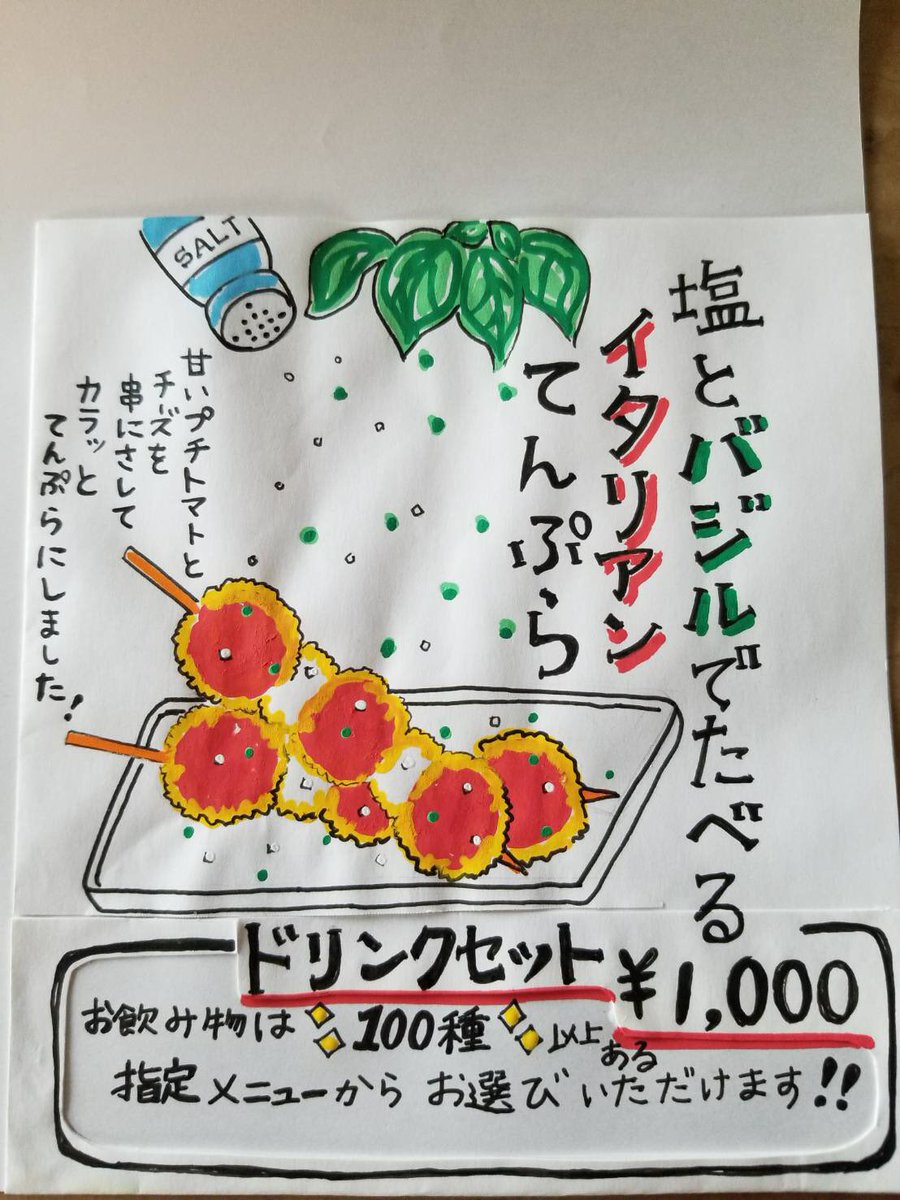 塩とバジルでたべる
イタリアン
てんぷら
SALT
甘いプチトマトと
チーズを
串にさして
カラッと
てんぷらにしました!
ドリンクセット ¥1,000
お飲み物は 100種 以上
ある
指定メニューから お選びいただけます!!